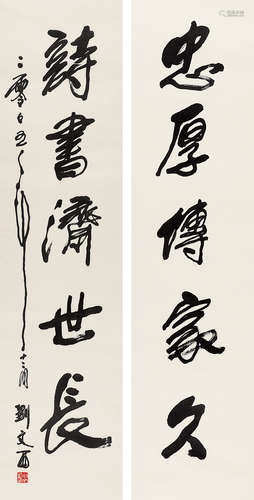 忠厚傳家久
詩書濟世長
二零零五年十二月
劉文西